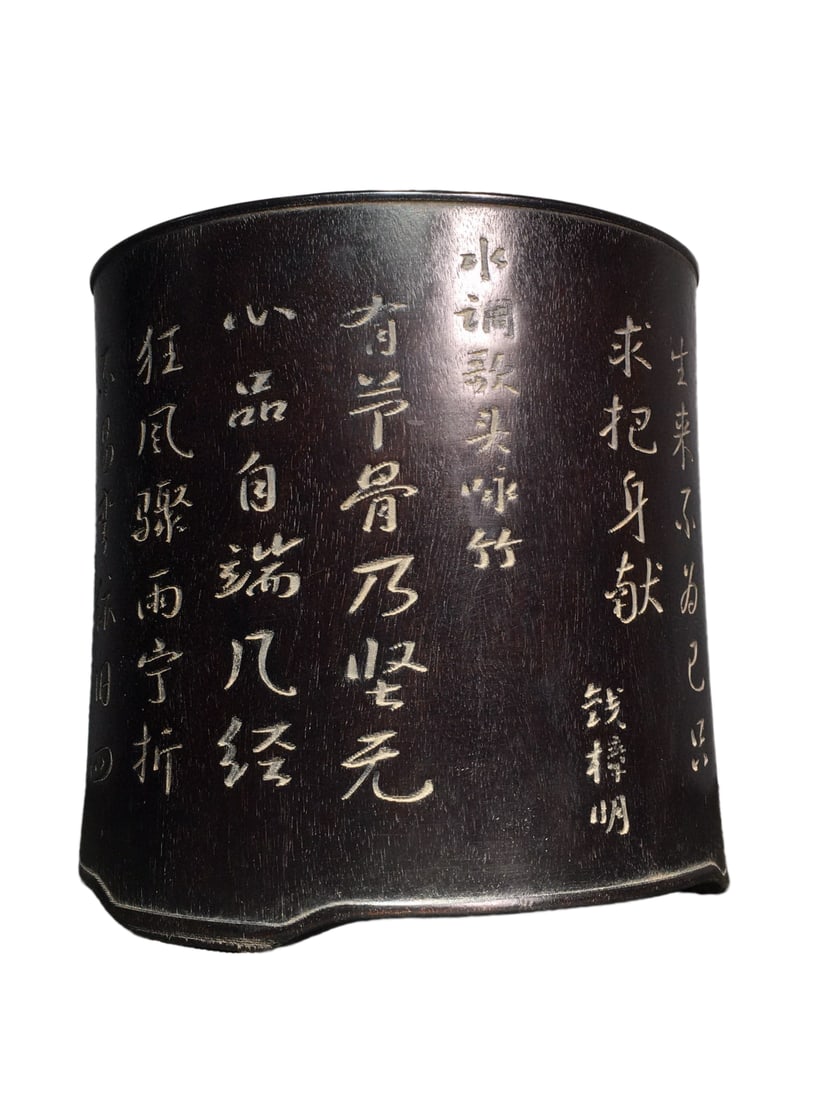 水调歌头咏竹
有节骨乃坚无
心品自端几经
狂风骤雨宁折
不易弯依旧四
生来不为己只
求把身献
钱樟明